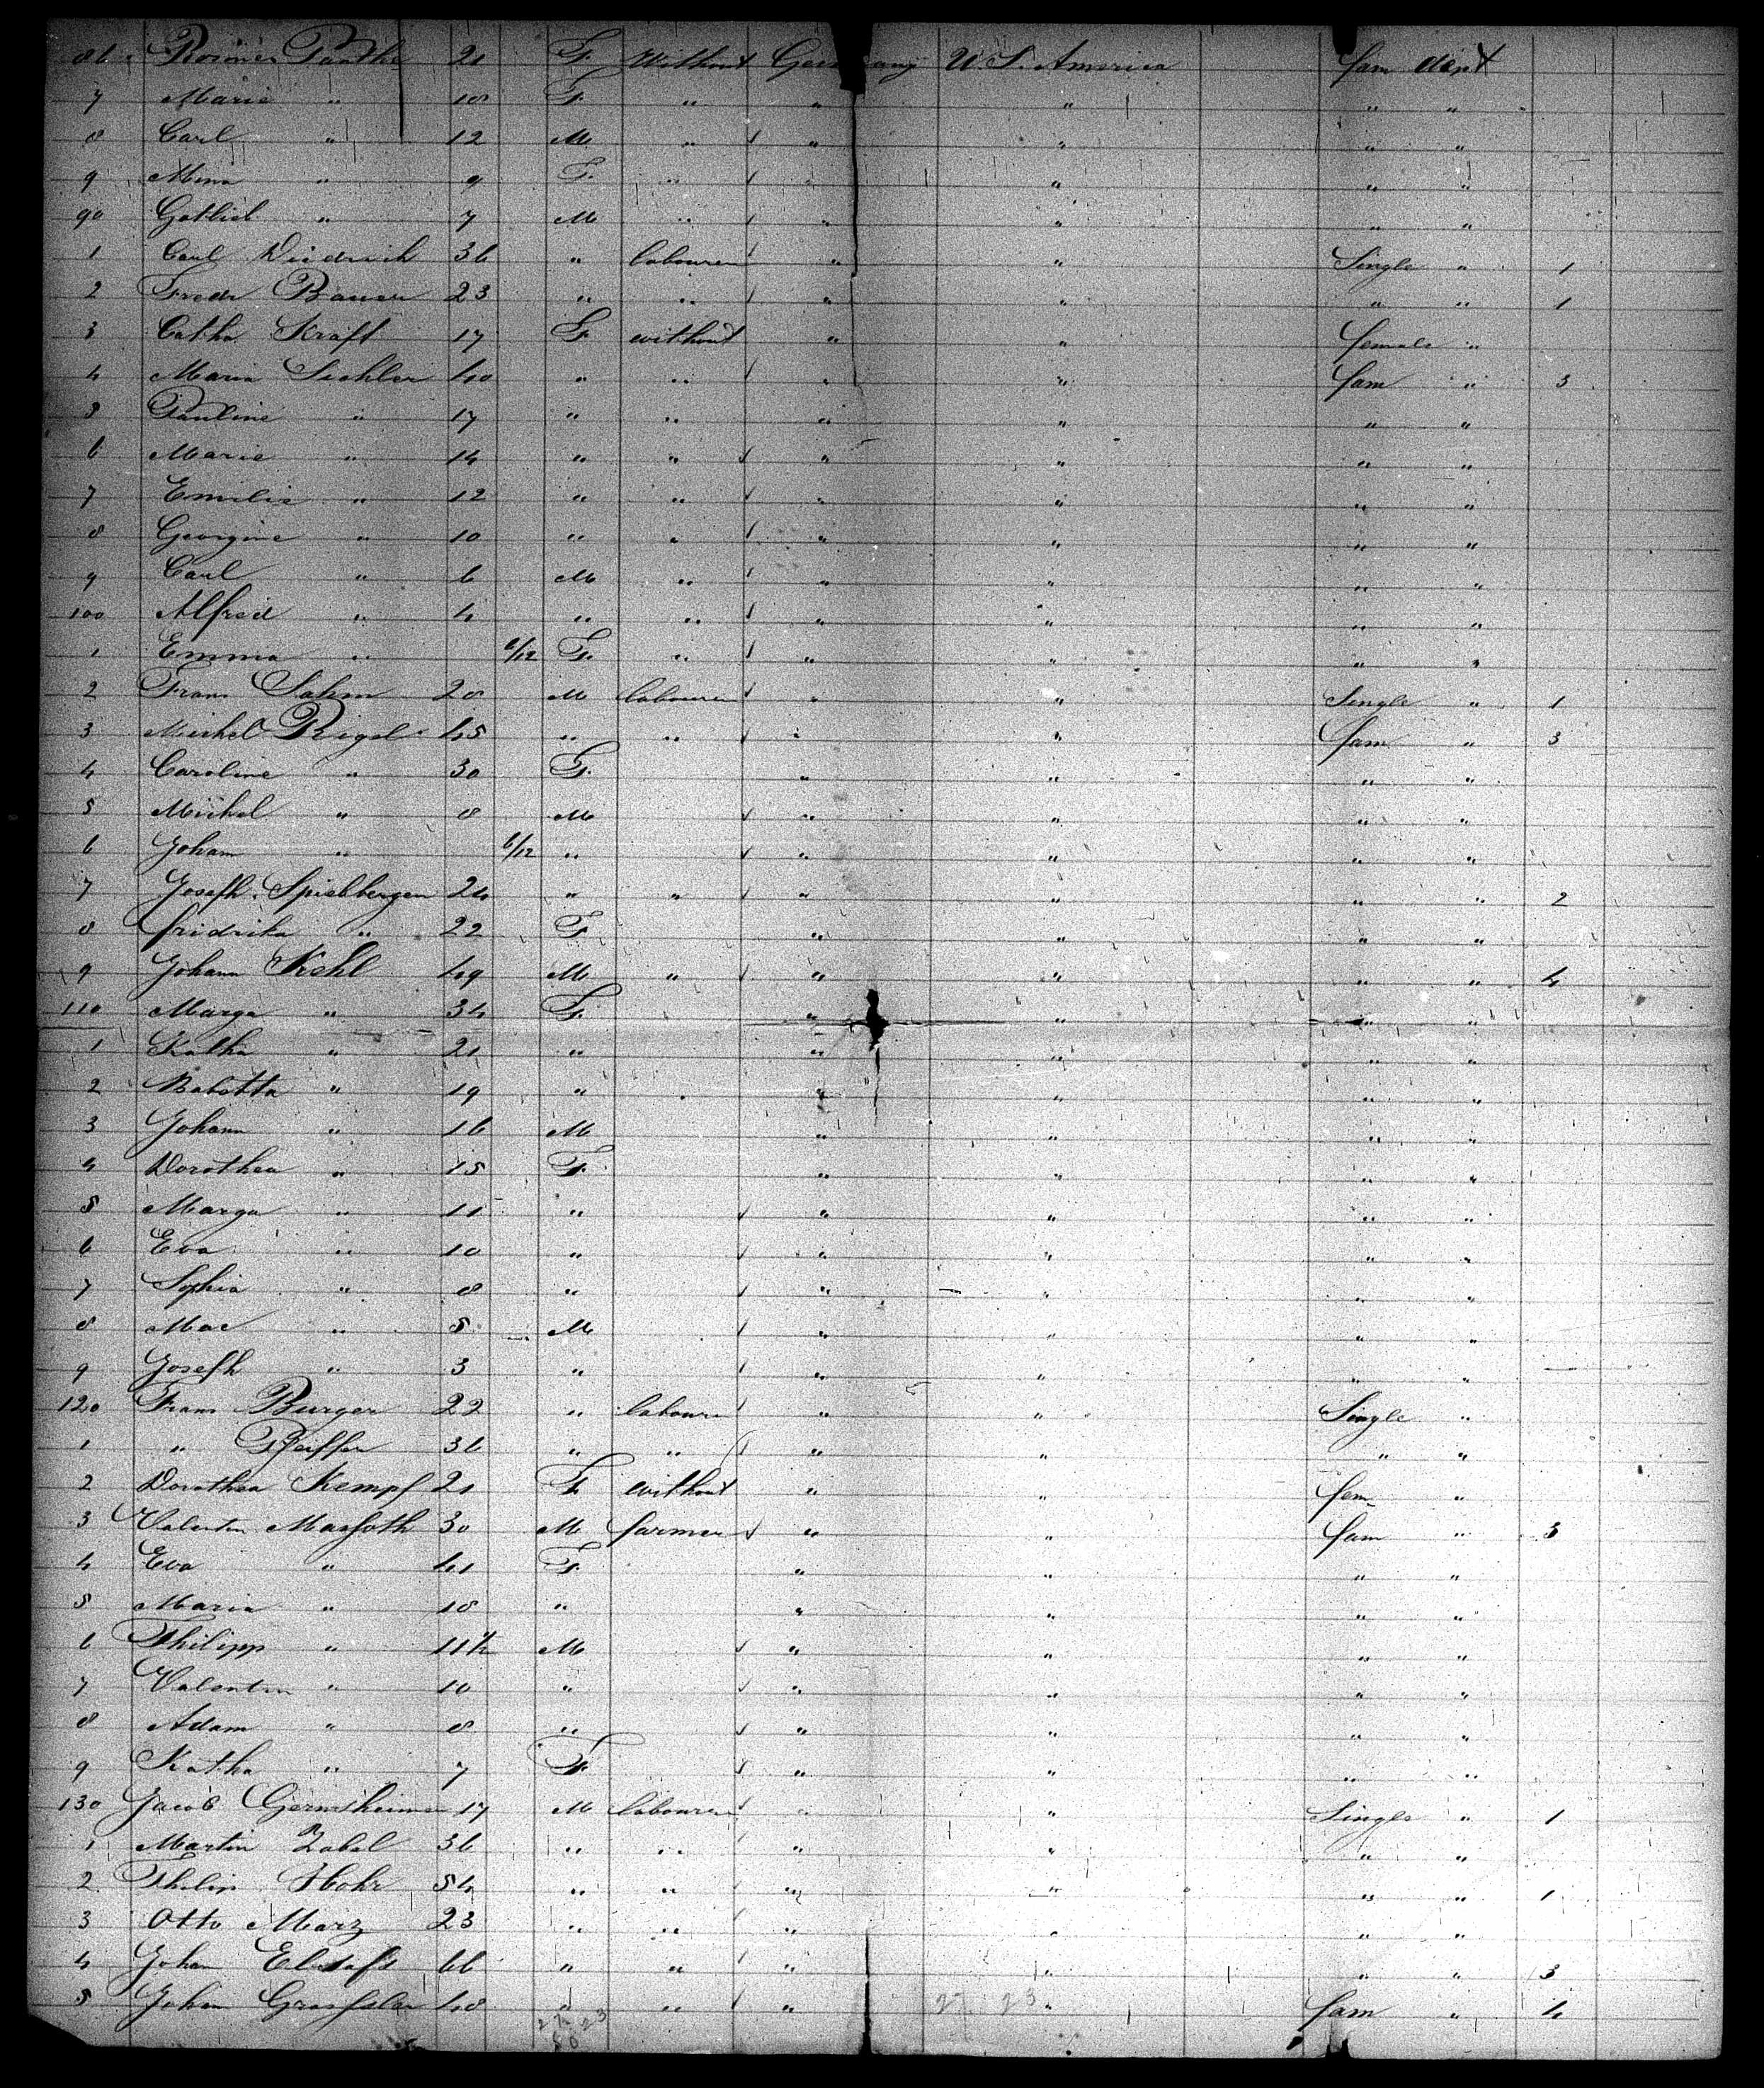 86 Rosiner 21 F. Without Germany U. S. America fam dept
7 Marie " 18 F. " " " " "
8 Carl " 12 M " " " " "
9 Mina " 9 F. " " " " "
90 Gotlieb " 7 M " " " " "
1 Carl Diedrich 36 " labourer " " Single " 1
2 Fredr Bauer 23 " " " " " " 1
3 Catha Kraft 17 F without " " female "
4 Maria Sichler 40 " " " " fam " 3
5 Pauline " 17 " " " " " "
6 Marie " 14 " " " " " "
7 Emilie " 12 " " " " " "
8 Georgine " 10 " " " " " "
9 Carl " 6 M " " " " "
100 Alfred " 4 " " " " " "
1 Emma " /12 F. " " " " "
2 Frans Sahm 28 M labourer " " Single " 1
3 Michel Rigel 45 " " " " fam " 3
4 Caroline " 30 F. " " " "
5 Michel " 8 M " " " "
6 Johann " 6/12 " " " " "
7 Joseph Spielbergen 24 " " " " " " 2
8 fridrika " 22 F " " " "
9 Johann Kehl 49 M " " " " " 4
110 Marga " 34 F. " " " "
1 Katha " 21 " " " " "
2 Babetta " 19 " " " " "
3 Johann " 16 M " " " "
4 Dorothea " 15 F. " " " "
5 Marga " 11 " " " " "
6 Eva " 10 " " " " "
7 Sophia " 8 " " " " "
8 Mac " 5 M " " " "
9 Joseph " 3 " " " " "
120 Frans Burger 22 " labourer " " Single "
1 " Pfeiffer 36 " " " " " "
2 Dorothea Kempf 21 F. without " " fem "
3 Valentin Massoth 30 M farmer " " fam " 3
4 Eva " 41 F. " " " "
5 Maria " 18 " " " " "
6 Philipp " 11½ M " " " "
7 Valentin " 10 " " " " "
8 Adam " 8 " " " " "
9 Katha " 7 F. " " " "
130 Jacob Germsheimer 17 M labourer " " Single " 1
1 Martin Zabel 36 " " " " " "
2 Philip Hohr 54 " " " " " " 1
3 Otto Marz 23 " " " " " "
4 Johan 66 " " " " " " 3
5 Johan 48 " " " " fam " 4
27 23